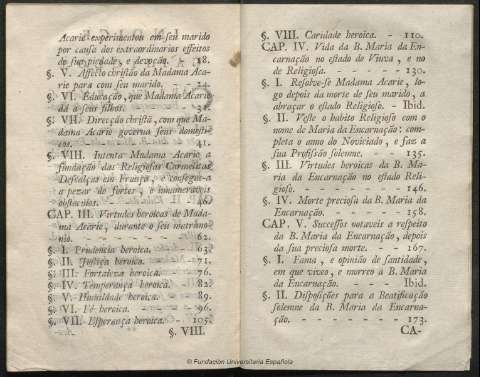 Acarie experimentou em seu marido
por causa dos extraordinarios effeitos
de sua piedade, e devoção. 18.
§. V. Affecto christão da Madama Aca-
rie para com seu marido. - - 24.
§. VI. Educação, que Madama Acarie
dá a seus filhos. - - - 31.
§. VII. Direcção christã, com que Ma-
dama Acarie governa seus domesti-
cos. - - - - - 41.
§. VIII. Intenta Madama Acarie a
fundação das Religiosas Carmelitas
Descalças em França, e consegue-a
a pezar de fortes, e innumeraveis
obstaculos. - - - - 46.
CAP. III. Virtudes heroicas de Mada-
ma Acarie, durante o seu matrimo-
nio. - - - - - - 62.
§. I. Prudencia heroica. - - 63.
§. II. Justiça heroica. - - - 71.
§. III. Fortaleza heroica. - - 76.
§. IV. Temperança heroica. - 82.
§. V. Humildade heroica. - - 89.
§. VI. Fé heroica. - - - - 96.
§. VII. Esperança heroica. - - 105.
§. VIII.
§. VIII. Caridade heroica. - - 110.
CAP. IV. Vida da B. Maria da En-
carnação no estado de Viuva, e no
de Religiosa. - - - - - 130.
§. I. Resolve-se Madama Acarie, lo-
go depois da morte de seu marido, a
abraçar o estado Religioso. - Ibid.
§. II. Veste o habito Religioso com o
nome de Maria da Encarnação: com-
pleta o anno do Noviciado, e faz a
sua Profissão solemne. - - 135.
§. III. Virtudes heroicas da B. Ma-
ria da Encarnação no estado Reli-
gioso. - - - - - - 146.
§. IV. Morte preciosa da B. Maria da
Encarnação. - - - - - 158.
CAP. V. Successos notaveis a respeito
da B. Maria da Encarnação, depois
da sua preciosa morte. - - 167.
§. I. Fama, e opinião de santidade,
em que viveo, e morreo a B. Maria
da Encarnação. - - - Ibid.
§. II. Disposições para a Beatificação
solemne da B. Maria da Encarna-
ção. - - - - - - - 173.
CA-
© Fundación Universitaria Española